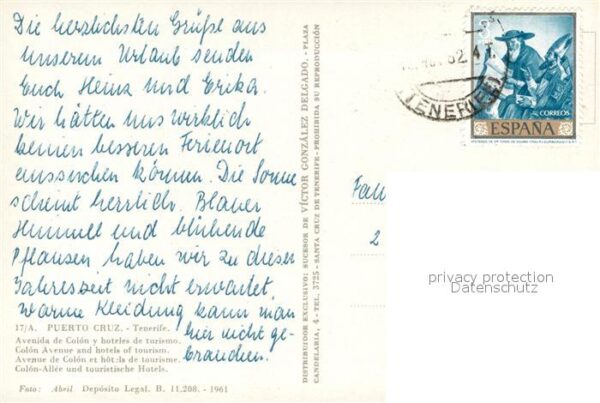 Die herzlichsten Grüße aus
unserem Urlaub senden
Euch Heinz und Erika.
Wir hätten uns wirklich
keinen besseren Ferienort
aussuchen können. Die Sonne
scheint herrlich. Blauer
Himmel und blühende
Pflanzen haben wir zu dieser
Jahreszeit nicht erwartet,
warme Kleidung kann man
hier nicht ge-
brauchen.
17/A. PUERTO CRUZ. - Tenerife.
Avenida de Colón y hoteles de turismo.
Colón Avenue and hotels of tourism.
Avenue de Colón et hôtels de tourisme.
Colón-Allée und touristische Hotels.
Foto: Abril Depósito Legal. B. 11.208. - 1961
DISTRIBUIDOR EXCLUSIVO: SUCESOR DE VÍCTOR GONZÁLEZ DELGADO. - PLAZA
CANDELARIA, 4 - TEL. 3725 - SANTA CRUZ DE TENERIFE - PROHIBIDA SU REPRODUCCIÓN
TENERIFE
CORREOS
ESPAÑA
Fam
2
privacy protection
Datenschutz